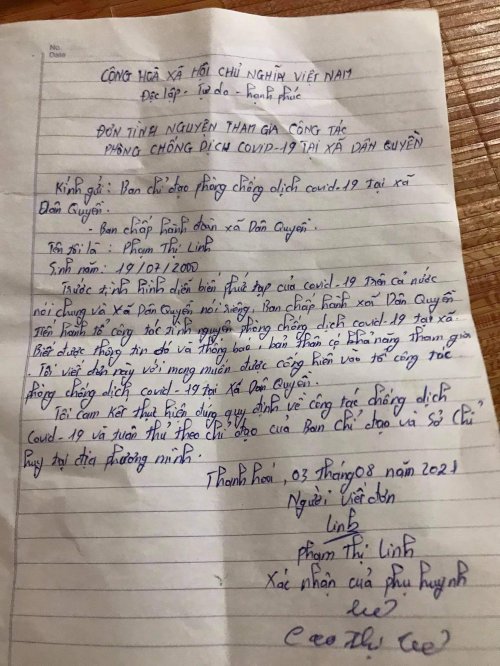 No.
Date
CỘNG HOÀ XÃ HỘI CHỦ NGHĨA VIỆT NAM
Độc lập - Tự do - hạnh phúc
ĐƠN TÌNH NGUYỆN THAM GIA CÔNG TÁC
PHÒNG CHỐNG DỊCH COVID-19 TẠI XÃ DÂN QUYỀN
Kính gửi: Ban chỉ đạo phòng chống dịch covid-19 tại xã
Dân Quyền.
- Ban chấp hành đoàn xã Dân Quyền.
Tên tôi là: Phạm Thị Linh
Sinh năm: 19/07/2000
Trước tình hình diễn biến phức tạp của covid-19 trên cả nước
nói chung và xã Dân Quyền nói riêng, Ban chấp hành xã Dân Quyền
tiến hành tổ công tác tình nguyện phòng chống dịch covid-19 tại xã.
Biết được thông tin đó và thông báo, bản thân có khả năng tham gia
Tôi viết đơn này với mong muốn được cống hiến vào tổ công tác
phòng chống dịch covid-19 tại Xã Dân Quyền.
Tôi cam kết thực hiện đúng quy định về công tác chống dịch
Covid-19 và tuân thủ theo chỉ đạo của Ban chỉ đạo và Sở chỉ
huy tại địa phương mình.
Thanh hoá, 03 tháng 08 năm 2021
Người viết đơn
Linh
Phạm Thị Linh
Xác nhận của phụ huynh
Cao Thị